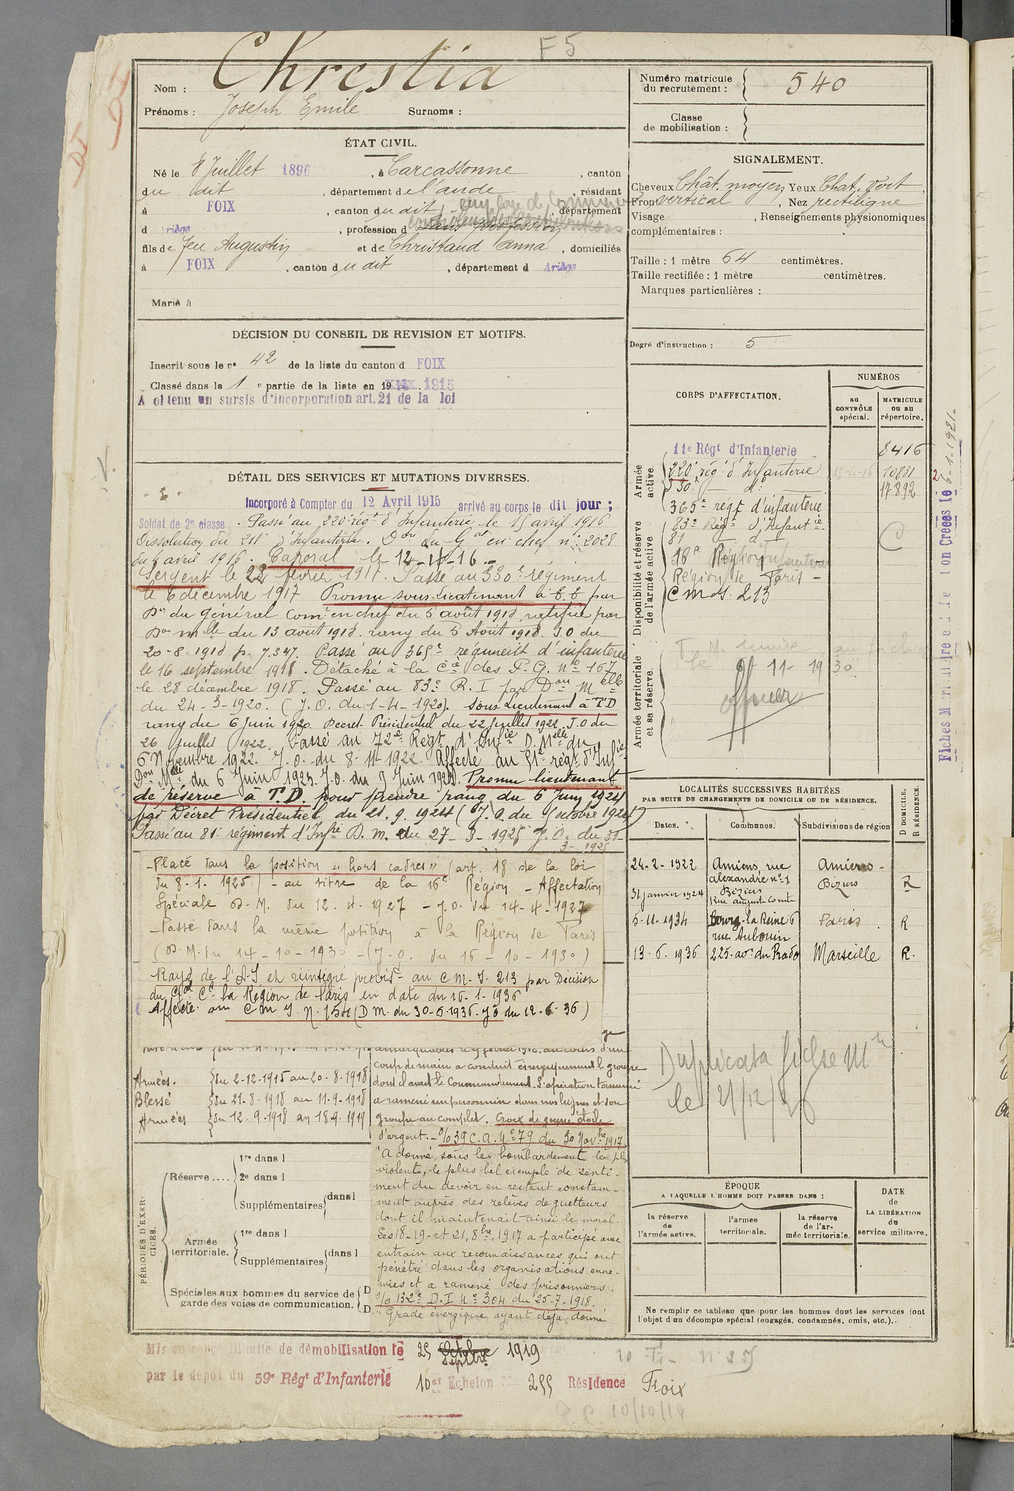 F5
Nom : Chrestia
Prénoms : Joseph Emile Surnoms :
ÉTAT CIVIL.
Né le 8 Juillet 1896, à Carcassonne, canton
du dit, département de l'aude, résidant
à FOIX, canton du dit, département
d Ariège, profession d sans profession
employé de commerce
fils de feu Augustin et de Christaud Anna, domiciliés
à FOIX, canton du dit, département d Ariège
Marié à
DÉCISION DU CONSEIL DE REVISION ET MOTIFS.
Inscrit sous le n° 42 de la liste du canton d FOIX
Classé dans la 1e partie de la liste en 19 1915
A obtenu un sursis d'incorporation art. 21 de la loi
DÉTAIL DES SERVICES ET MUTATIONS DIVERSES.
Incorporé à Compter du 12 Avril 1915 arrivé au corps le dit jour ;
Soldat de 2e classe. Passé au 220e régt d'Infanterie le 15 avril 1916
Dissolution du 211e d'Infanterie. Don du Gal en chef n° 2028
du 7 avril 1916. Caporal le 12-11-16.
Sergent le 22 février 1917. Passé au 330e régiment
le 6 décembre 1917 Promu sous-lieutenant à T.T. par
Don du Général Comt en chef du 5 août 1918, ratifié par
Don mlle du 13 août 1918. rang du 5 Août 1918. J.O du
20-8-1918 p. 7.347. Passé au 365e régiment d'infanterie
le 16 septembre 1918. Détaché à la Cie des P.G. N° 167
le 28 décembre 1918. Passé au 83e R.I par Don Melle
du 24-3-1920. (J.O. du 1-4-1920). Sous Lieutenant à T.D
rang du 6 Juin 1920. Decret Présidentiel du 22 Juillet 1922. J.O du
26 Juillet 1922. Passé au 72e Régt d'Infie D.Melle du
6 Novembre 1922. J.O. du 8-11-1922. Affecté au 81e régt d'Infie
Don Melle du 6 Juin 1925. J.O. du 9 Juin 1925. Promu lieutenant
de réserve à T.D. pour prendre rang du 6 Juin 1924
par Décret Présidentiel du 21.9.1924 (J.O. du octobre 1924)
Passé au 81e régiment d'Infie D.M. du 27-3-1925 J.O. du 31-
3-1925
Placé dans la position "hors cadres" (art. 18 de la loi
du 8-1-1925) - au titre de la 16e Région - Affectation
Spéciale D.M. du 12-4-1927 - J.O. du 14-4-1927
Passé dans la même position à la Région de Paris
(D.M. du 14-10-1930 - (J.O. du 16-10-1930)
Rayé de l'A.S et réintégré provist au C.M.I. 213 par Décision
du Gal Ct la Région de Paris en date du 15-1-1936
Affecté au C m I. N. 154 (D M. du 30-5-1936. J.O du 12-6-36)
coup de main a conduit énergiquement le groupe
dont il avait le Commandement. L'opération terminée
a ramené un prisonnier dans nos lignes et son
groupe au complet. Croix de guerre étoile
d'argent. O/O 39 C.A. N° 79 du 30 Novbre 1917
"A donné, sous les bombardements les plus
violents, le plus bel exemple de senti-
ment du devoir en restant constam-
ment auprès des relèves de guetteurs
dont il maintenait ainsi le moral.
Les 18-19-et 21, 8bre 1917 a participé avec
entrain aux reconnaissances qui ont
pénétré dans les organisations enne-
mies et a ramené des prisonniers.
O/O 132e D.I N° 304 du 25-7-1918.
"Gradé énergique ayant déjà donné
Armées. du 2-12-1915 au 20-8-1918
Blessé du 21-8-1918 au 11-9-1918
Armées du 12.9-1918 au 18-9-1919
PÉRIODES D'EXERCICES.
Réserve....
1re dans l
2e dans l
Supplémentaires dans l
Armée territoriale.
1re dans l
Supplémentaires dans l
Spéciales aux hommes du service de garde des voies de communication.
D
D
Mis en congé illimité de démobilisation le 25 Septbre 1919
par le dépôt du 59e Régt d'Infanterie 10e Echelon 255 Résidence Foix
Numéro matricule du recrutement : 540
Classe de mobilisation :
SIGNALEMENT.
Cheveux Chât. moyen Yeux Chat. vert
Front vertical, Nez rectiligne
Visage, Renseignements physionomiques
complémentaires :
Taille : 1 mètre 64 centimètres.
Taille rectifiée : 1 mètre centimètres.
Marques particulières :
Degré d'instruction : 5
CORPS D'AFFECTATION.
NUMÉROS
au CONTRÔLE spécial.
MATRICULE ou au répertoire.
Armée active.
11e Régt d'Infanterie 8416
220e rég. d'Infanterie 10801
330e do 17.892
365e régt d'infanterie
Disponibilité et réserve de l'armée active.
83e Régt d'Infantie
81 d
16e Région
Région de Paris -
C m I. 213
Armée territoriale et sa réserve.
le 11-1930
officier
Fiches Matricule et de Con Creées le 6-1-1921.
LOCALITÉS SUCCESSIVES HABITÉES
PAR SUITE DE CHANGEMENTS DE DOMICILE OU DE RÉSIDENCE.
Dates. Communes. Subdivisions de région
D DOMICILE, R RÉSIDENCE.
24-2-1922 Amiens, rue alexandre n° 1 Amiens -
31 janvier 1924 Béziers Rue august comte Béziers R
5-11-1934 Bourg-la-Reine 6 rue Aubouin Paris R
13-6-1936 225-avue du Prado Marseille R.
Duplicata fiche Mle
le 21/12/26
ÉPOQUE
A LAQUELLE L'HOMME DOIT PASSER DANS :
la réserve de l'armée active.
l'armée territoriale.
la réserve de l'armée territoriale.
DATE de LA LIBÉRATION du service militaire.
Ne remplir ce tableau que pour les hommes dont les services font
l'objet d'un décompte spécial (engagés, condamnés, omis, etc.).
10/10/19